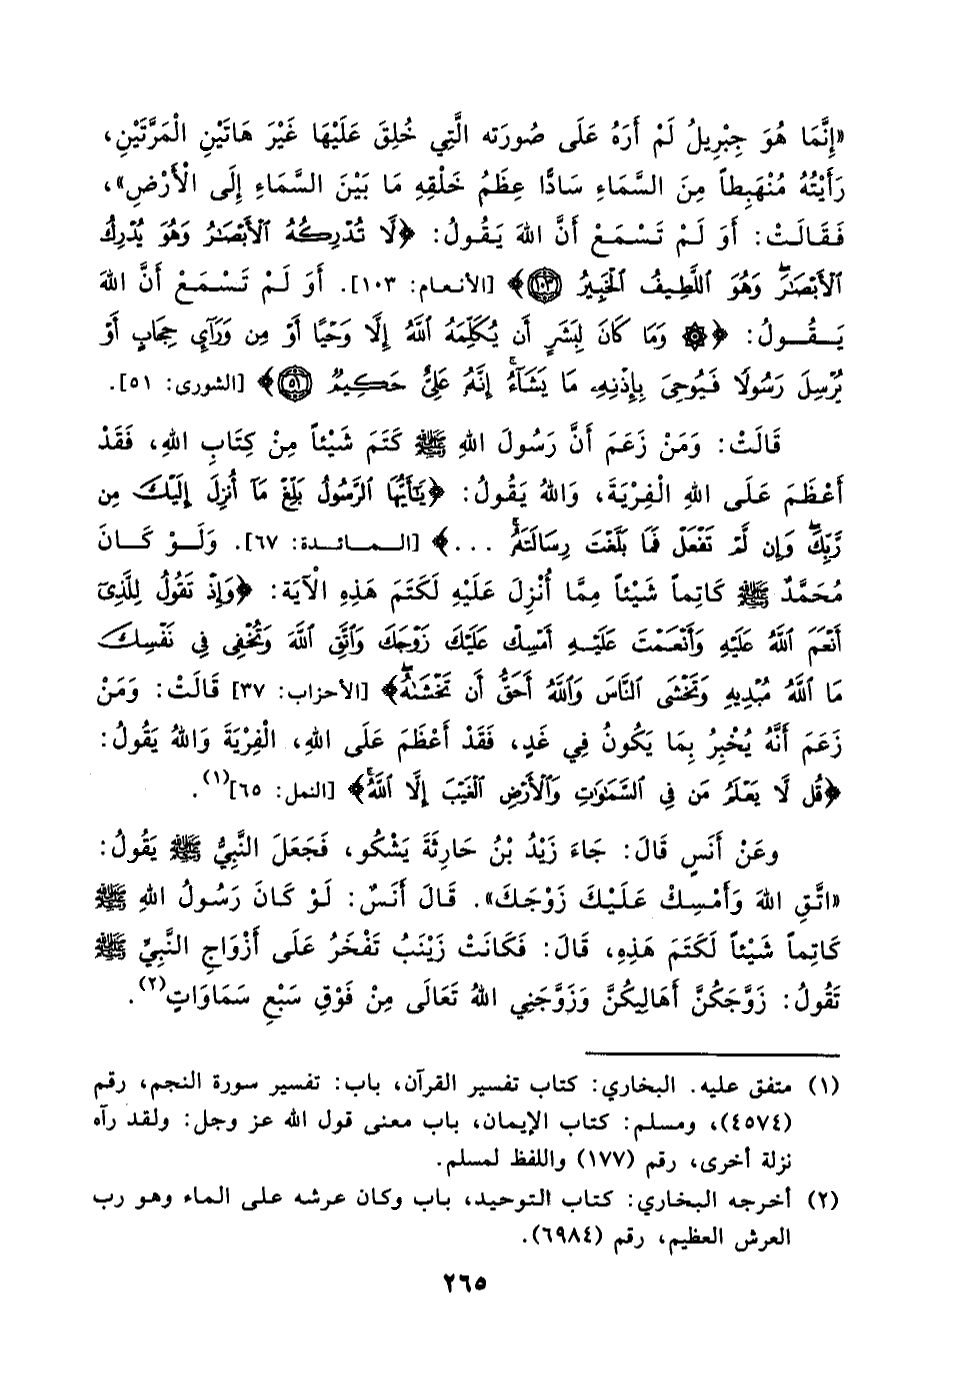 «إِنَّمَا هُوَ جِبْرِيلُ لَمْ أَرَهُ عَلَى صُورَته الَّتِي خُلِقَ عَلَيْهَا غَيْرَ هَاتَيْنِ الْمَرَّتَيْنِ،
رَأَيْتُهُ مُنْهَبِطاً مِنَ السَّمَاءِ سَادًّا عِظَمُ خَلْقِهِ مَا بَيْنَ السَّمَاءِ إِلَى الْأَرْضِ»،
فَقَالَتْ: أَوَ لَمْ تَسْمَعْ أَنَّ اللهَ يَقُولُ: ﴿لَّا تُدْرِكُهُ ٱلْأَبْصَٰرُ وَهُوَ يُدْرِكُ
ٱلْأَبْصَٰرَۖ وَهُوَ ٱللَّطِيفُ ٱلْخَبِيرُ ۝١٠٣﴾ [الأنعام: ١٠٣]. أَوَ لَمْ تَسْمَعْ أَنَّ اللهَ
يَقُولُ: ﴿۞ وَمَا كَانَ لِبَشَرٍ أَن يُكَلِّمَهُ ٱللَّهُ إِلَّا وَحْيًا أَوْ مِن وَرَآئِ حِجَابٍ أَوْ
يُرْسِلَ رَسُولًا فَيُوحِيَ بِإِذْنِهِۦ مَا يَشَآءُۚ إِنَّهُۥ عَلِيٌّ حَكِيمٌ ۝٥١﴾ [الشورى: ٥١].
قَالَتْ: وَمَنْ زَعَمَ أَنَّ رَسُولَ اللهِ ﷺ كَتَمَ شَيْئاً مِنْ كِتَابِ اللهِ، فَقَدْ
أَعْظَمَ عَلَى اللهِ الْفِرْيَةَ، وَاللهُ يَقُولُ: ﴿يَٰٓأَيُّهَا ٱلرَّسُولُ بَلِّغْ مَآ أُنزِلَ إِلَيْكَ مِن
رَّبِّكَۖ وَإِن لَّمْ تَفْعَلْ فَمَا بَلَّغْتَ رِسَالَتَهُۥۚ ...﴾ [المائدة: ٦٧]. وَلَوْ كَانَ
مُحَمَّدٌ ﷺ كَاتِماً شَيْئاً مِمَّا أُنْزِلَ عَلَيْهِ لَكَتَمَ هَذِهِ الْآيَةَ: ﴿وَإِذْ تَقُولُ لِلَّذِيٓ
أَنْعَمَ ٱللَّهُ عَلَيْهِ وَأَنْعَمْتَ عَلَيْهِ أَمْسِكْ عَلَيْكَ زَوْجَكَ وَٱتَّقِ ٱللَّهَ وَتُخْفِي فِي نَفْسِكَ
مَا ٱللَّهُ مُبْدِيهِ وَتَخْشَى ٱلنَّاسَ وَٱللَّهُ أَحَقُّ أَن تَخْشَىٰهُۖ﴾ [الأحزاب: ٣٧] قَالَتْ: وَمَنْ
زَعَمَ أَنَّهُ يُخْبِرُ بِمَا يَكُونُ فِي غَدٍ، فَقَدْ أَعْظَمَ عَلَى اللهِ، الْفِرْيَةَ وَاللهُ يَقُولُ:
﴿قُل لَّا يَعْلَمُ مَن فِي ٱلسَّمَٰوَٰتِ وَٱلْأَرْضِ ٱلْغَيْبَ إِلَّا ٱللَّهُۚ﴾ [النمل: ٦٥](١).
وعَنْ أَنَسٍ قَالَ: جَاءَ زَيْدُ بْنُ حَارِثَةَ يَشْكُو، فَجَعَلَ النَّبِيُّ ﷺ يَقُولُ:
«اتَّقِ اللهَ وَأَمْسِكْ عَلَيْكَ زَوْجَكَ». قَالَ أَنَسٌ: لَوْ كَانَ رَسُولُ اللهِ ﷺ
كَاتِماً شَيْئاً لَكَتَمَ هَذِهِ، قَالَ: فَكَانَتْ زَيْنَبُ تَفْخَرُ عَلَى أَزْوَاجِ النَّبِيِّ ﷺ
تَقُولُ: زَوَّجَكُنَّ أَهَالِيكُنَّ وَزَوَّجَنِي اللهُ تَعَالَى مِنْ فَوْقِ سَبْعِ سَمَاوَاتٍ(٢).
(١) متفق عليه. البخاري: كتاب تفسير القرآن، باب: تفسير سورة النجم، رقم
(٤٥٧٤)، ومسلم: كتاب الإيمان، باب معنى قول الله عز وجل: ولقد رآه
نزلة أخرى، رقم (١٧٧) واللفظ لمسلم.
(٢) أخرجه البخاري: كتاب التوحيد، باب وكان عرشه على الماء وهو رب
العرش العظيم، رقم (٦٩٨٤).
٢٦٥